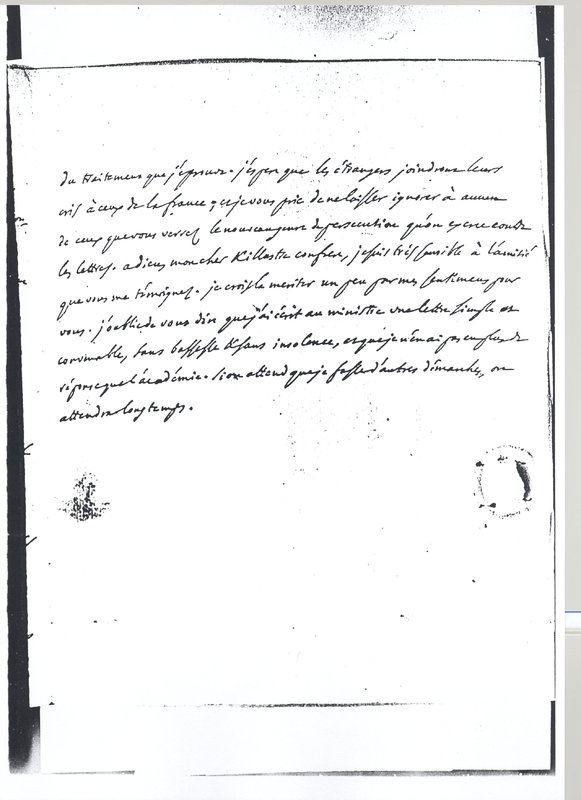 du traitement que j'éprouve. j'espere que les étrangers joindront leurs
cris à ceux de la france, et je vous prie de ne laisser ignorer à aucun
de ceux que vous verrez le nouveau genre de persecution qu'on exerce contre
les lettres. adieu mon cher & illustre confrere, je suis très sensible à l'amitié
que vous me témoignez. je crois la meriter un peu par mes sentimens pour
vous. j'oublie de vous dire que j'ai écrit au ministre une lettre simple et
convenable, sans bassesse & sans insolence, et que je n'en ai pas eu plus de
réponse que l'académie. si on attend que je fasse d'autres démarches, on
attendra longtemps.